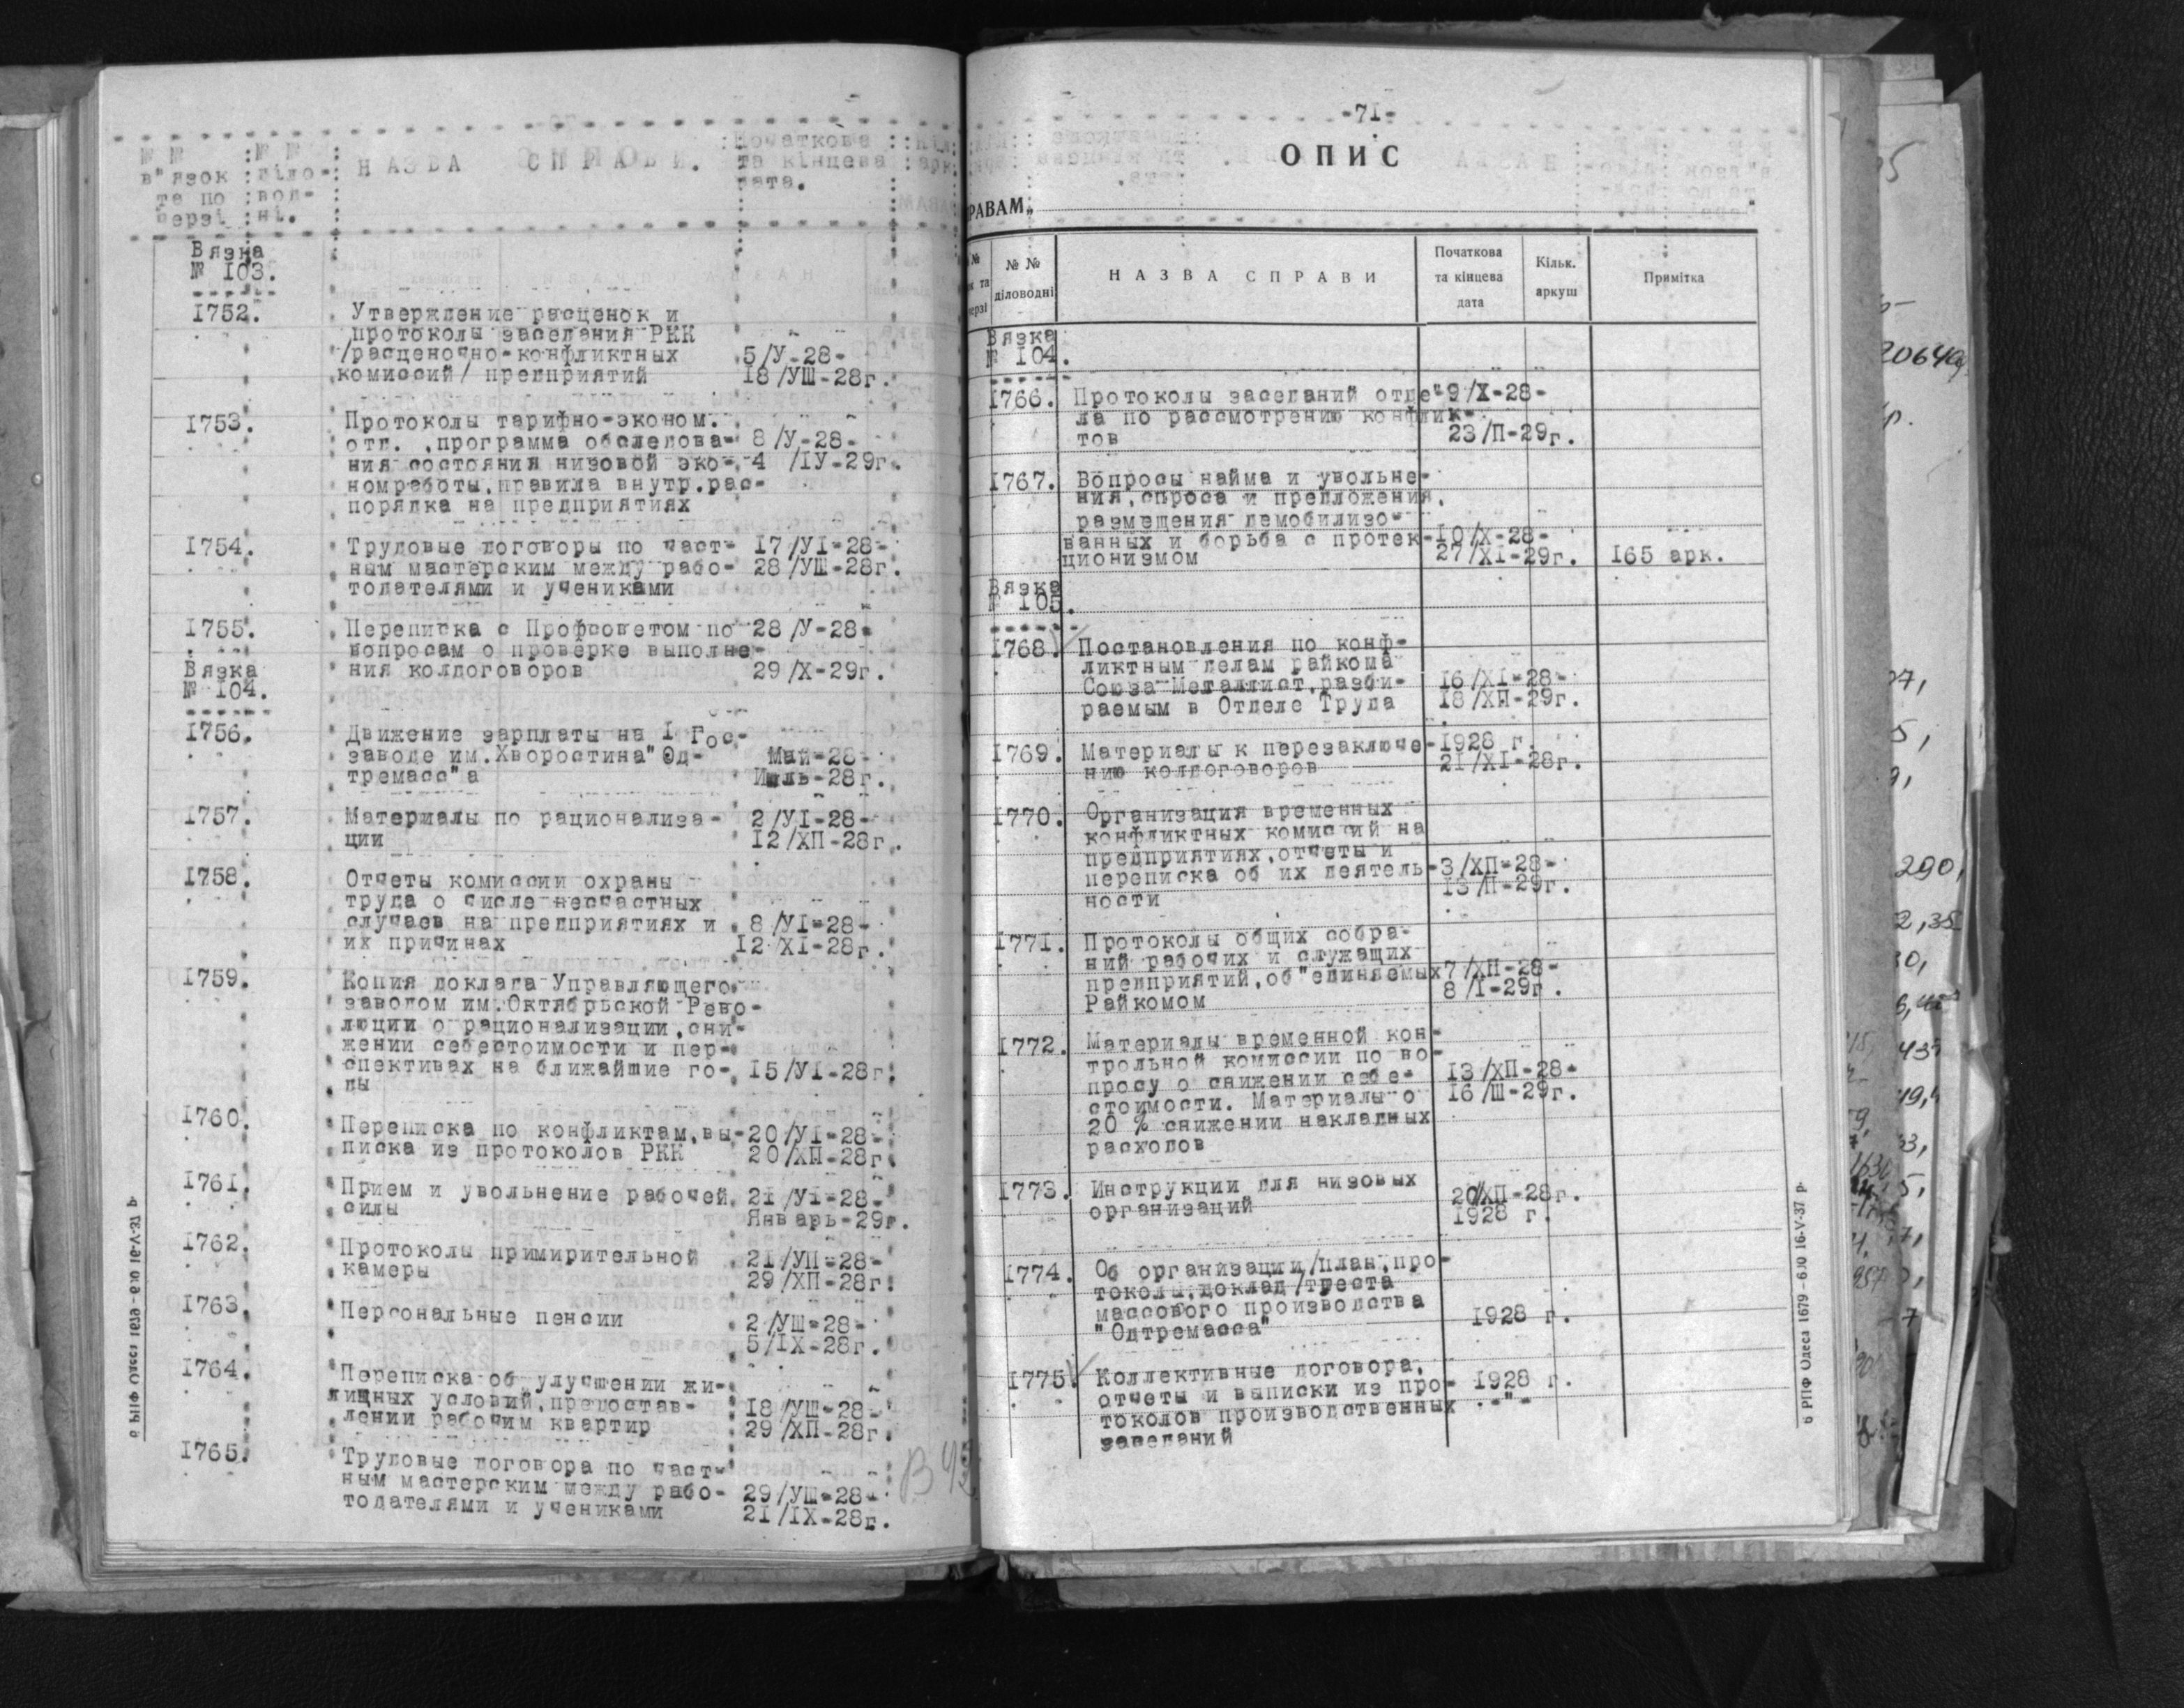 № № в"язок та по черзі
№ № діло- вод- ні.
НАЗВА СПРАВИ.
Початкова та кінцева дата.
Вязка
№ 103.
1752. Утверждение расценок и
протоколы заседания РКК
/расценочно-конфликтных 5/У-28-
комиссий/ предприятий 18/УШ-28г.
1753. Протоколы тарифно-эконом.
отд. ,программа обследова- 8/У-28-
ния состояния низовой эко- 4 /IУ-29г.
номработы,правила внутр.рас-
порядка на предприятиях
1754. Трудовые договоры по част- 17/УI-28-
ным мастерским между рабо- 28/УШ-28г.
тодателями и учениками
1755. Переписка с Профсоветом по 28/У-28-
вопросам о проверке выполне-
ния колдоговоров 29/Х-29г.
Вязка
№ 104.
1756. Движение зарплаты на 1 Гос-
заводе им.Хворостина"Од- Май-28-
тремасс"а Июль-28г.
1757. Материалы по рационализа- 2/УI-28-
ции 12/ХП-28г.
1758. Отчеты комиссии охраны
труда о числе несчастных
случаев на предприятиях и 8/УI-28-
их причинах 12/XI-28г.
1759. Копия доклада Управляющего
заводом им.Октябрьской Рево-
люции о рационализации,сни-
жении себестоимости и пер-
спективах на ближайшие го- 15/УI-28г.
ды
1760. Переписка по конфликтам,вы- 20/УI-28-
писка из протоколов РКК 20/ХП-28г.
1761. Прием и увольнение рабочей 21/УI-28-
силы Январь-29г.
1762. Протоколы примирительной 21/УП-28-
камеры 29/ХП-28г.
1763. Персональные пенсии 2/УШ-28-
5/IХ-28г.
1764. Переписка об улучшении жи-
лищных условий,предостав- 18/УШ-28-
лении рабочим квартир 29/ХП-28г.
1765. Трудовые договора по част-
ным мастерским между рабо- 29/УШ-28-
тодателями и учениками 21/IХ-28г.
-71-
ОПИС
РАВАМ„
№ № діловодні
НАЗВА СПРАВИ
Початкова та кінцева дата
Кільк. аркуш
Примітка
Вязка
№ 104.
1766. Протоколы заседаний отде- 9/Х-28-
ла по рассмотрению конфлик-
тов 23/П-29г.
1767. Вопросы найма и увольне-
ния,спроса и предложения,
размещения демобилизо-
ванных и борьба с протек- 10/Х-28-
ционизмом 27/ХI-29г. 165 арк.
Вязка
№ 105.
1768. Постановления по конф-
ликтным делам райкома
Союза Металлист,разби- 16/ХI-28-
раемым в Отделе Труда 18/ХП-29г.
1769. Материалы к перезаключе- 1928 г.
нию колдоговоров 21/ХI-28г.
1770. Организация временных
конфликтных комиссий на
предприятиях,отчеты и
переписка об их деятель- 3/ХП-28-
ности 13/П-29г.
1771. Протоколы общих собра-
ний рабочих и служащих
предприятий,об"единяемых 7/ХП-28-
Райкомом 8/I-29г.
1772. Материалы временной кон-
трольной комиссии по во-
просу о снижении себе- 13/ХП-28-
стоимости. Материалы о 16/Ш-29г.
20 % снижении накладных
расходов
1773. Инструкции для низовых 20/ХП-28г.
организаций 1928 г.
1774. Об организации/план,про-
токолы,доклад/треста
массового производства 1928 г.
"Одтремасса"
1775. Коллективные договора,
отчеты и выписки из про- 1928 г.
токолов производственных -"-
заседаний
6 РПФ Одеса 1679-600 16-V-37 р.